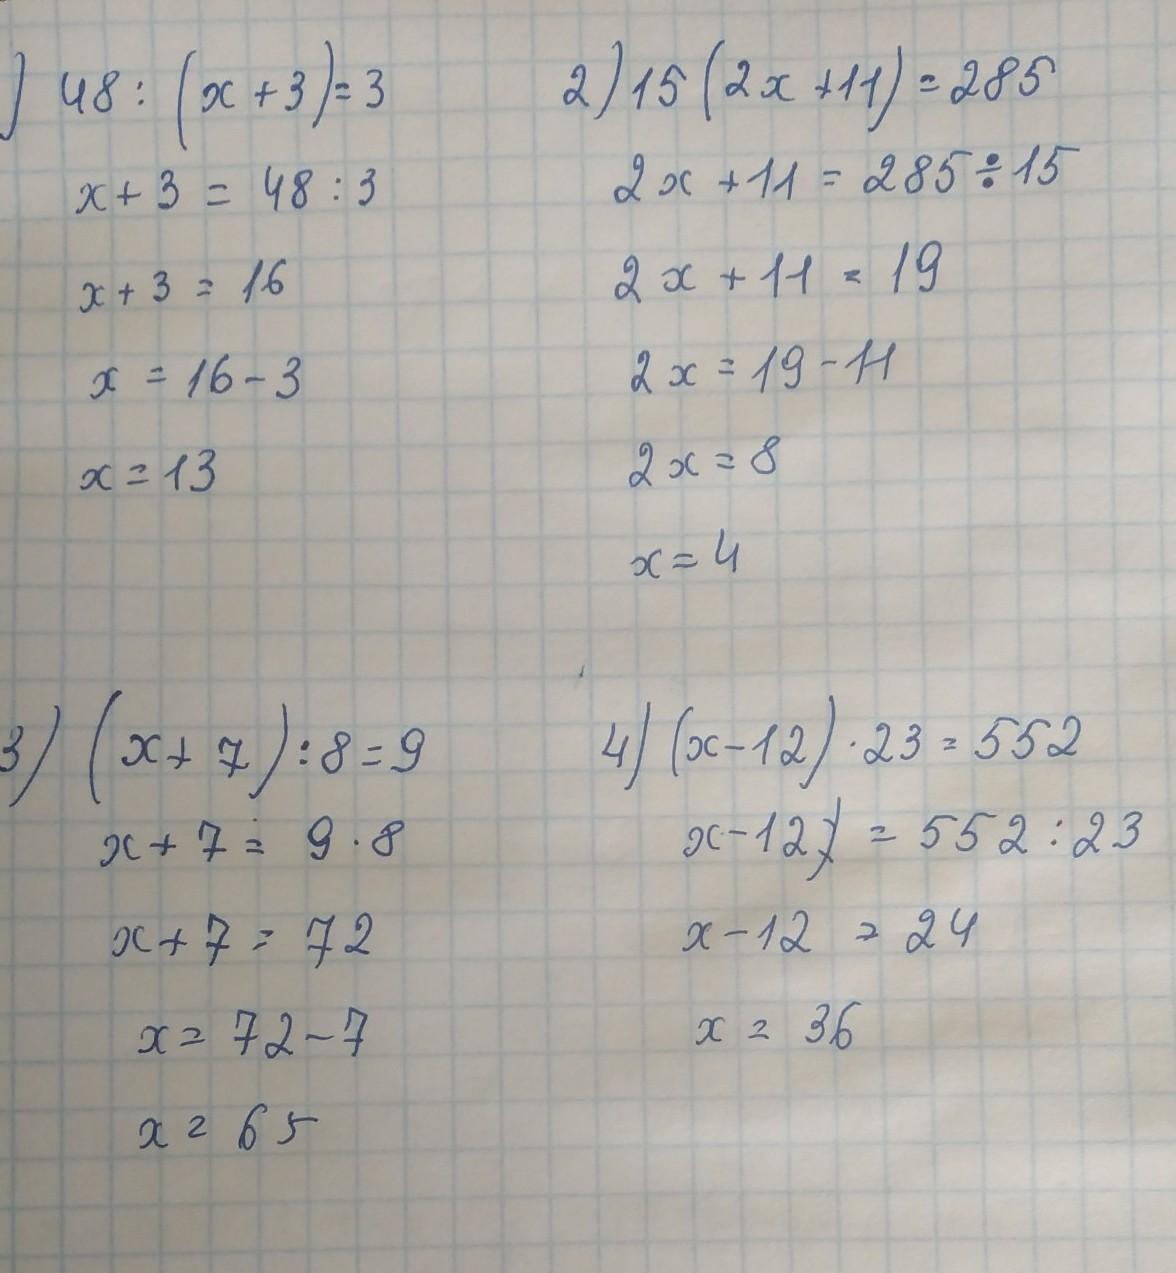 ) 48 : (x + 3) = 3
x + 3 = 48 : 3
x + 3 = 16
x = 16 - 3
x = 13
2) 15 (2x + 11) = 285
2x + 11 = 285 ÷ 15
2x + 11 = 19
2x = 19 - 11
2x = 8
x = 4
3) (x + 7) : 8 = 9
x + 7 = 9 · 8
x + 7 = 72
x = 72 - 7
x = 65
4) (x - 12) · 23 = 552
x - 12) = 552 : 23
x - 12 = 24
x = 36